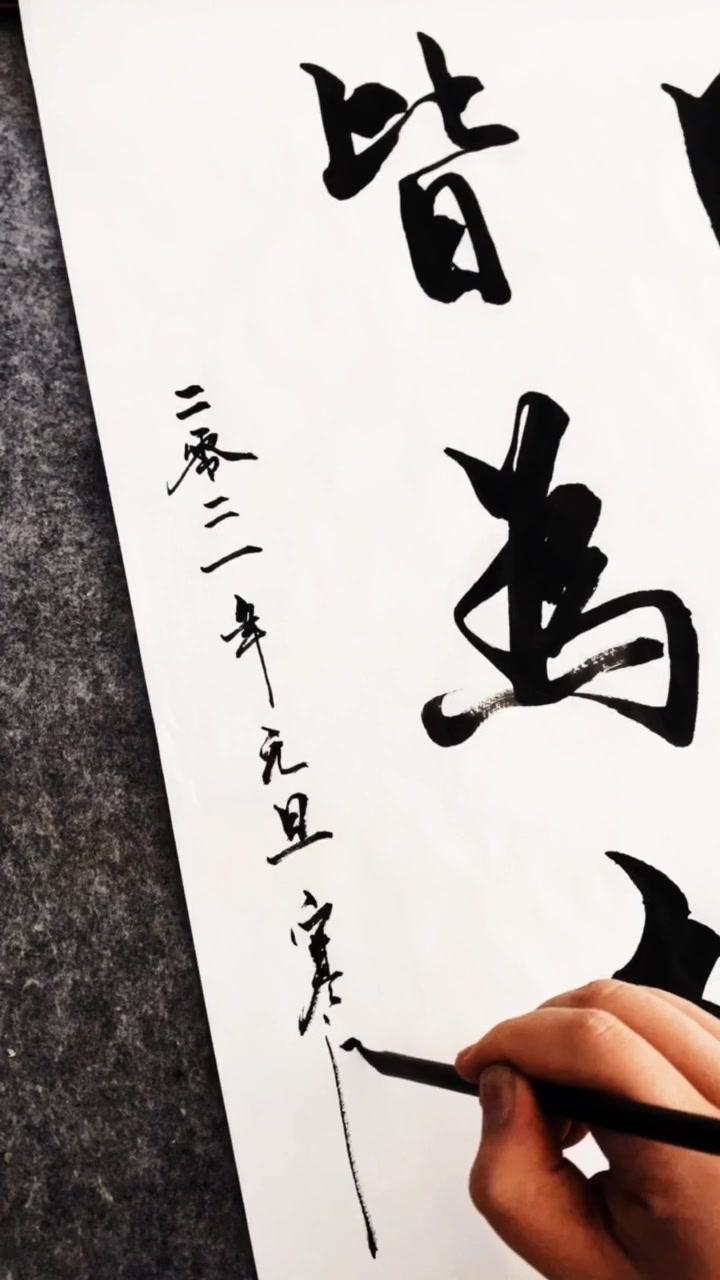 皆為
二零二一年元旦寒